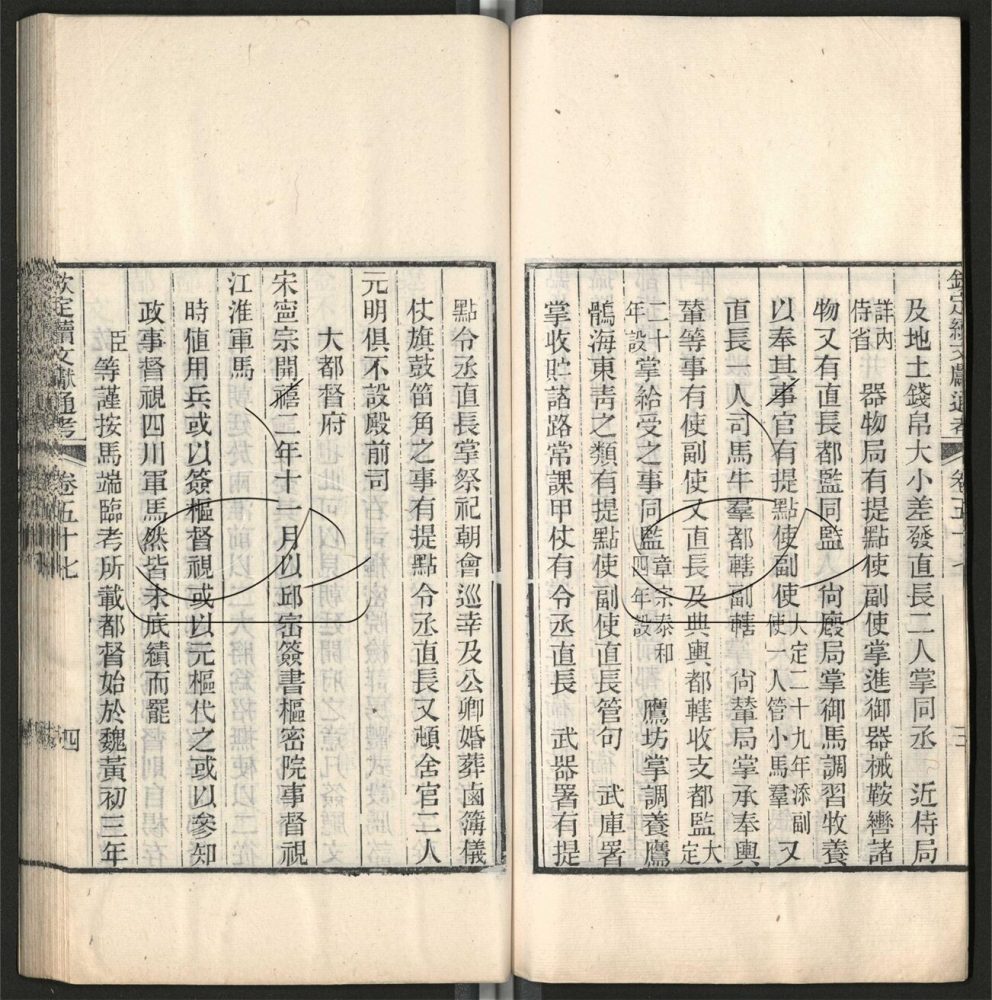 欽定續文獻通考 卷五十七 三
及地土錢帛大小差發直長二人掌同丞 近侍局
詳內侍省 器物局有提點使副使掌進御器械鞍轡諸
物又有直長都監同監 尙廄局掌御馬調習牧養
以奉其事官有提點使副使大定二十九年添副使一人管小馬羣又
直長一人司馬牛羣都轄副轄 尙輦局掌承奉輿
輦等事有使副使又直長及典輿都轄收支都監大定
二十年設掌給受之事同監章宗泰和四年設 鷹坊掌調養鷹
鶻海東靑之類有提點使副使直長管句 武庫署
掌收貯諸路常課甲仗有令丞直長 武器署有提
點令丞直長掌祭祀朝會巡幸及公卿婚葬鹵簿儀
仗旗鼓笛角之事有提點令丞直長又頓舍官二人
元明俱不設殿前司
大都督府
宋寧宗開禧二年十一月以邱崈簽書樞密院事督視
江淮軍馬
時値用兵或以簽樞督視或以元樞代之或以參知
政事督視四川軍馬然皆未底績而罷
臣等謹按馬端臨考所載都督始於魏黃初三年
欽定續文獻通考 卷五十七 四